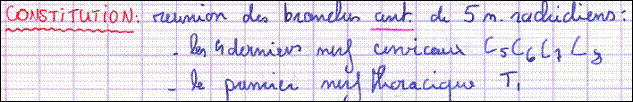 CONSTITUTION: réunion des branches ant. de 5 n. rachidiens:
- les 4 derniers nerf cervicaux C5 C6 C7 C8
- le premier nerf thoracique T1